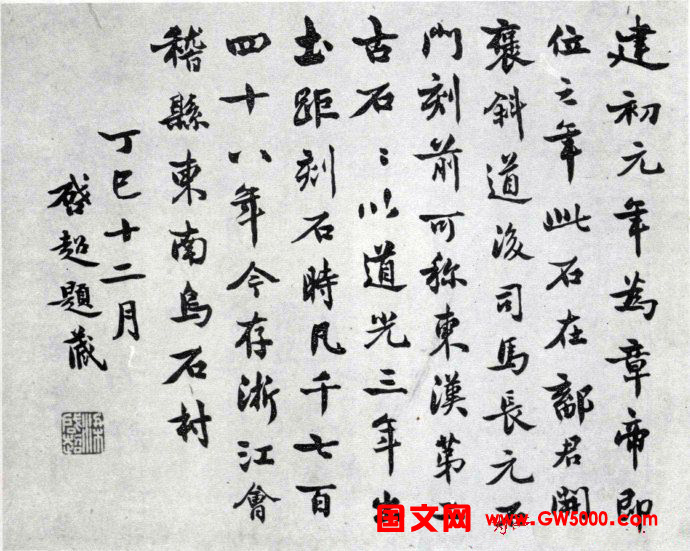 建初元年為章帝即
位之年此石在鄐君開
褒斜道後司馬長元
門刻前可称東漢第
古石〻以道光三年出
土距刻石時凡千七百
四十八年今存浙江會
稽縣東南烏石村
丁巳十二月
啓超題藏
图文网 www.GW5000.com